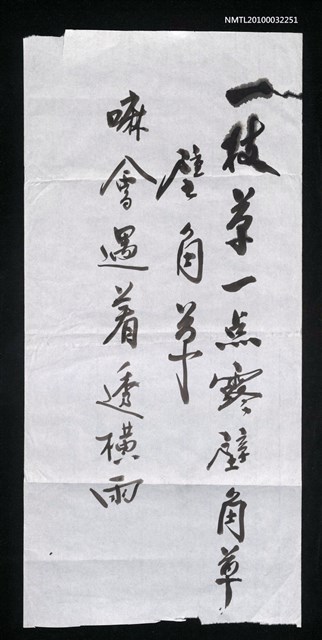 NMTL20100032251
一枝草一点露壁角草
壁角草
嘛會遇着透橫雨